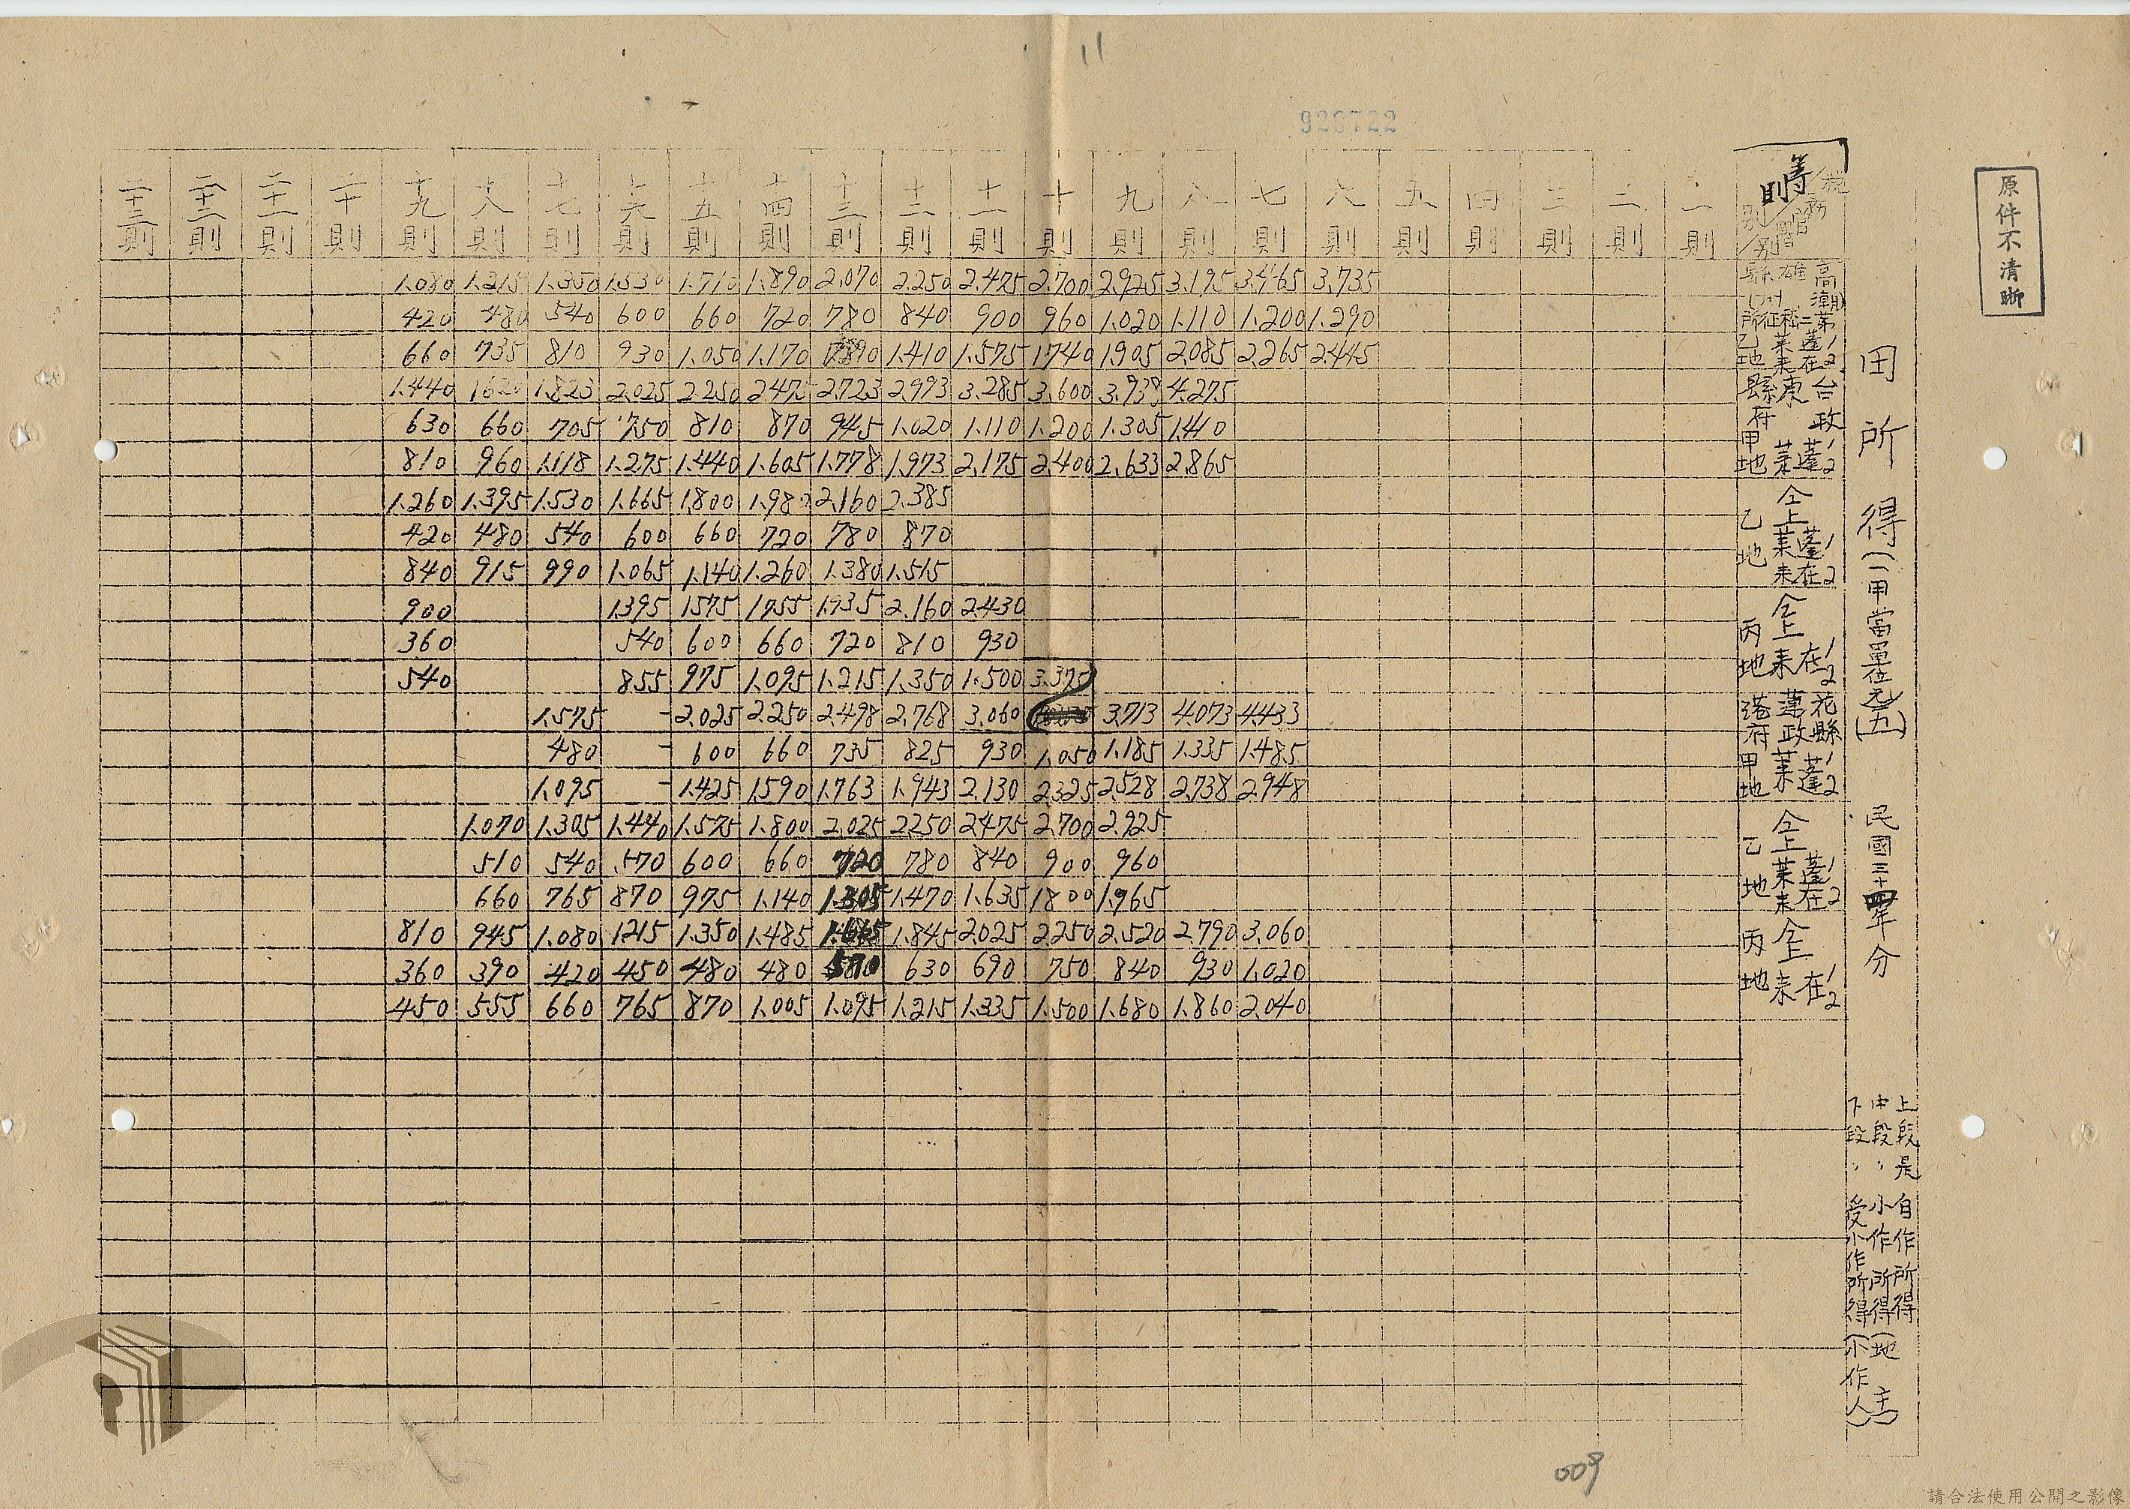 11
928722
原件不清晰
田所得(一甲當單位元)(五) 民國三十四年分
上段是自作所得
中段〃小作所得(地主)
下段〃受小作所得(小作人)
等則
一則 二則 三則 四則 五則 六則 七則 八則 九則 十則 十一則 十二則 十三則 十四則 十五則 十六則 十七則 十八則 十九則 二十則 二十一則 二十二則 二十三則
高雄縣
乙地 蓬萊在來1/2
1.080 1.215 1.350 1.530 1.710 1.890 2.070 2.250 2.475 2.700 2.925 3.195 3.465 3.735
420 480 540 600 660 720 780 840 900 960 1.020 1.110 1.200 1.290
660 735 810 930 1.050 1.170 1.410 1.575 1740 1.905 2.085 2.265 2.445
台東縣政府 甲地 蓬萊1/2
1.440 1620 1.823 2.025 2.250 2475 2.723 2.993 3.285 3.600 3.939 4.275
630 660 705 750 810 870 945 1.020 1.110 1.200 1.305 1.410
810 960 1.118 1.275 1.440 1.605 1.778 1.973 2.175 2.400 2.633 2.865
仝上 乙地 蓬萊在來1/2
1.260 1.395 1.530 1.665 1.800 1.980 2.160 2.385
420 480 540 600 660 720 780 870
840 915 990 1.065 1.140 1.260 1.380 1.515
仝上 丙地 在來1/2
900 1.395 1575 1.755 1.935 2.160 2.430
360 540 600 660 720 810 930
540 855 975 1.095 1.215 1.350 1.500 3.375
花蓮港縣政府 甲地 蓬萊1/2
1.575 - 2.025 2.250 2.498 2.768 3.060 3.713 4.073 4.433
480 - 600 660 735 825 930 1.050 1.185 1.335 1.485
1.095 - 1.425 1.590 1.763 1.943 2.130 2.325 2.528 2.738 2.948
仝上 乙地 蓬萊在來1/2
1.070 1.305 1.440 1.575 1.800 2.025 2.250 2475 2.700 2.925
510 540 570 600 660 720 780 840 900 960
660 765 870 975 1.140 1.305 1.470 1.635 1800 1.965
仝上 丙地 在來1/2
810 945 1.080 1215 1.350 1.485 1.665 1.845 2.025 2.250 2.520 2.790 3.060
360 390 420 450 480 480 570 630 690 750 840 930 1.020
450 555 660 765 870 1.005 1.095 1.215 1.335 1.500 1.680 1.860 2.040
009
請合法使用公開之影像